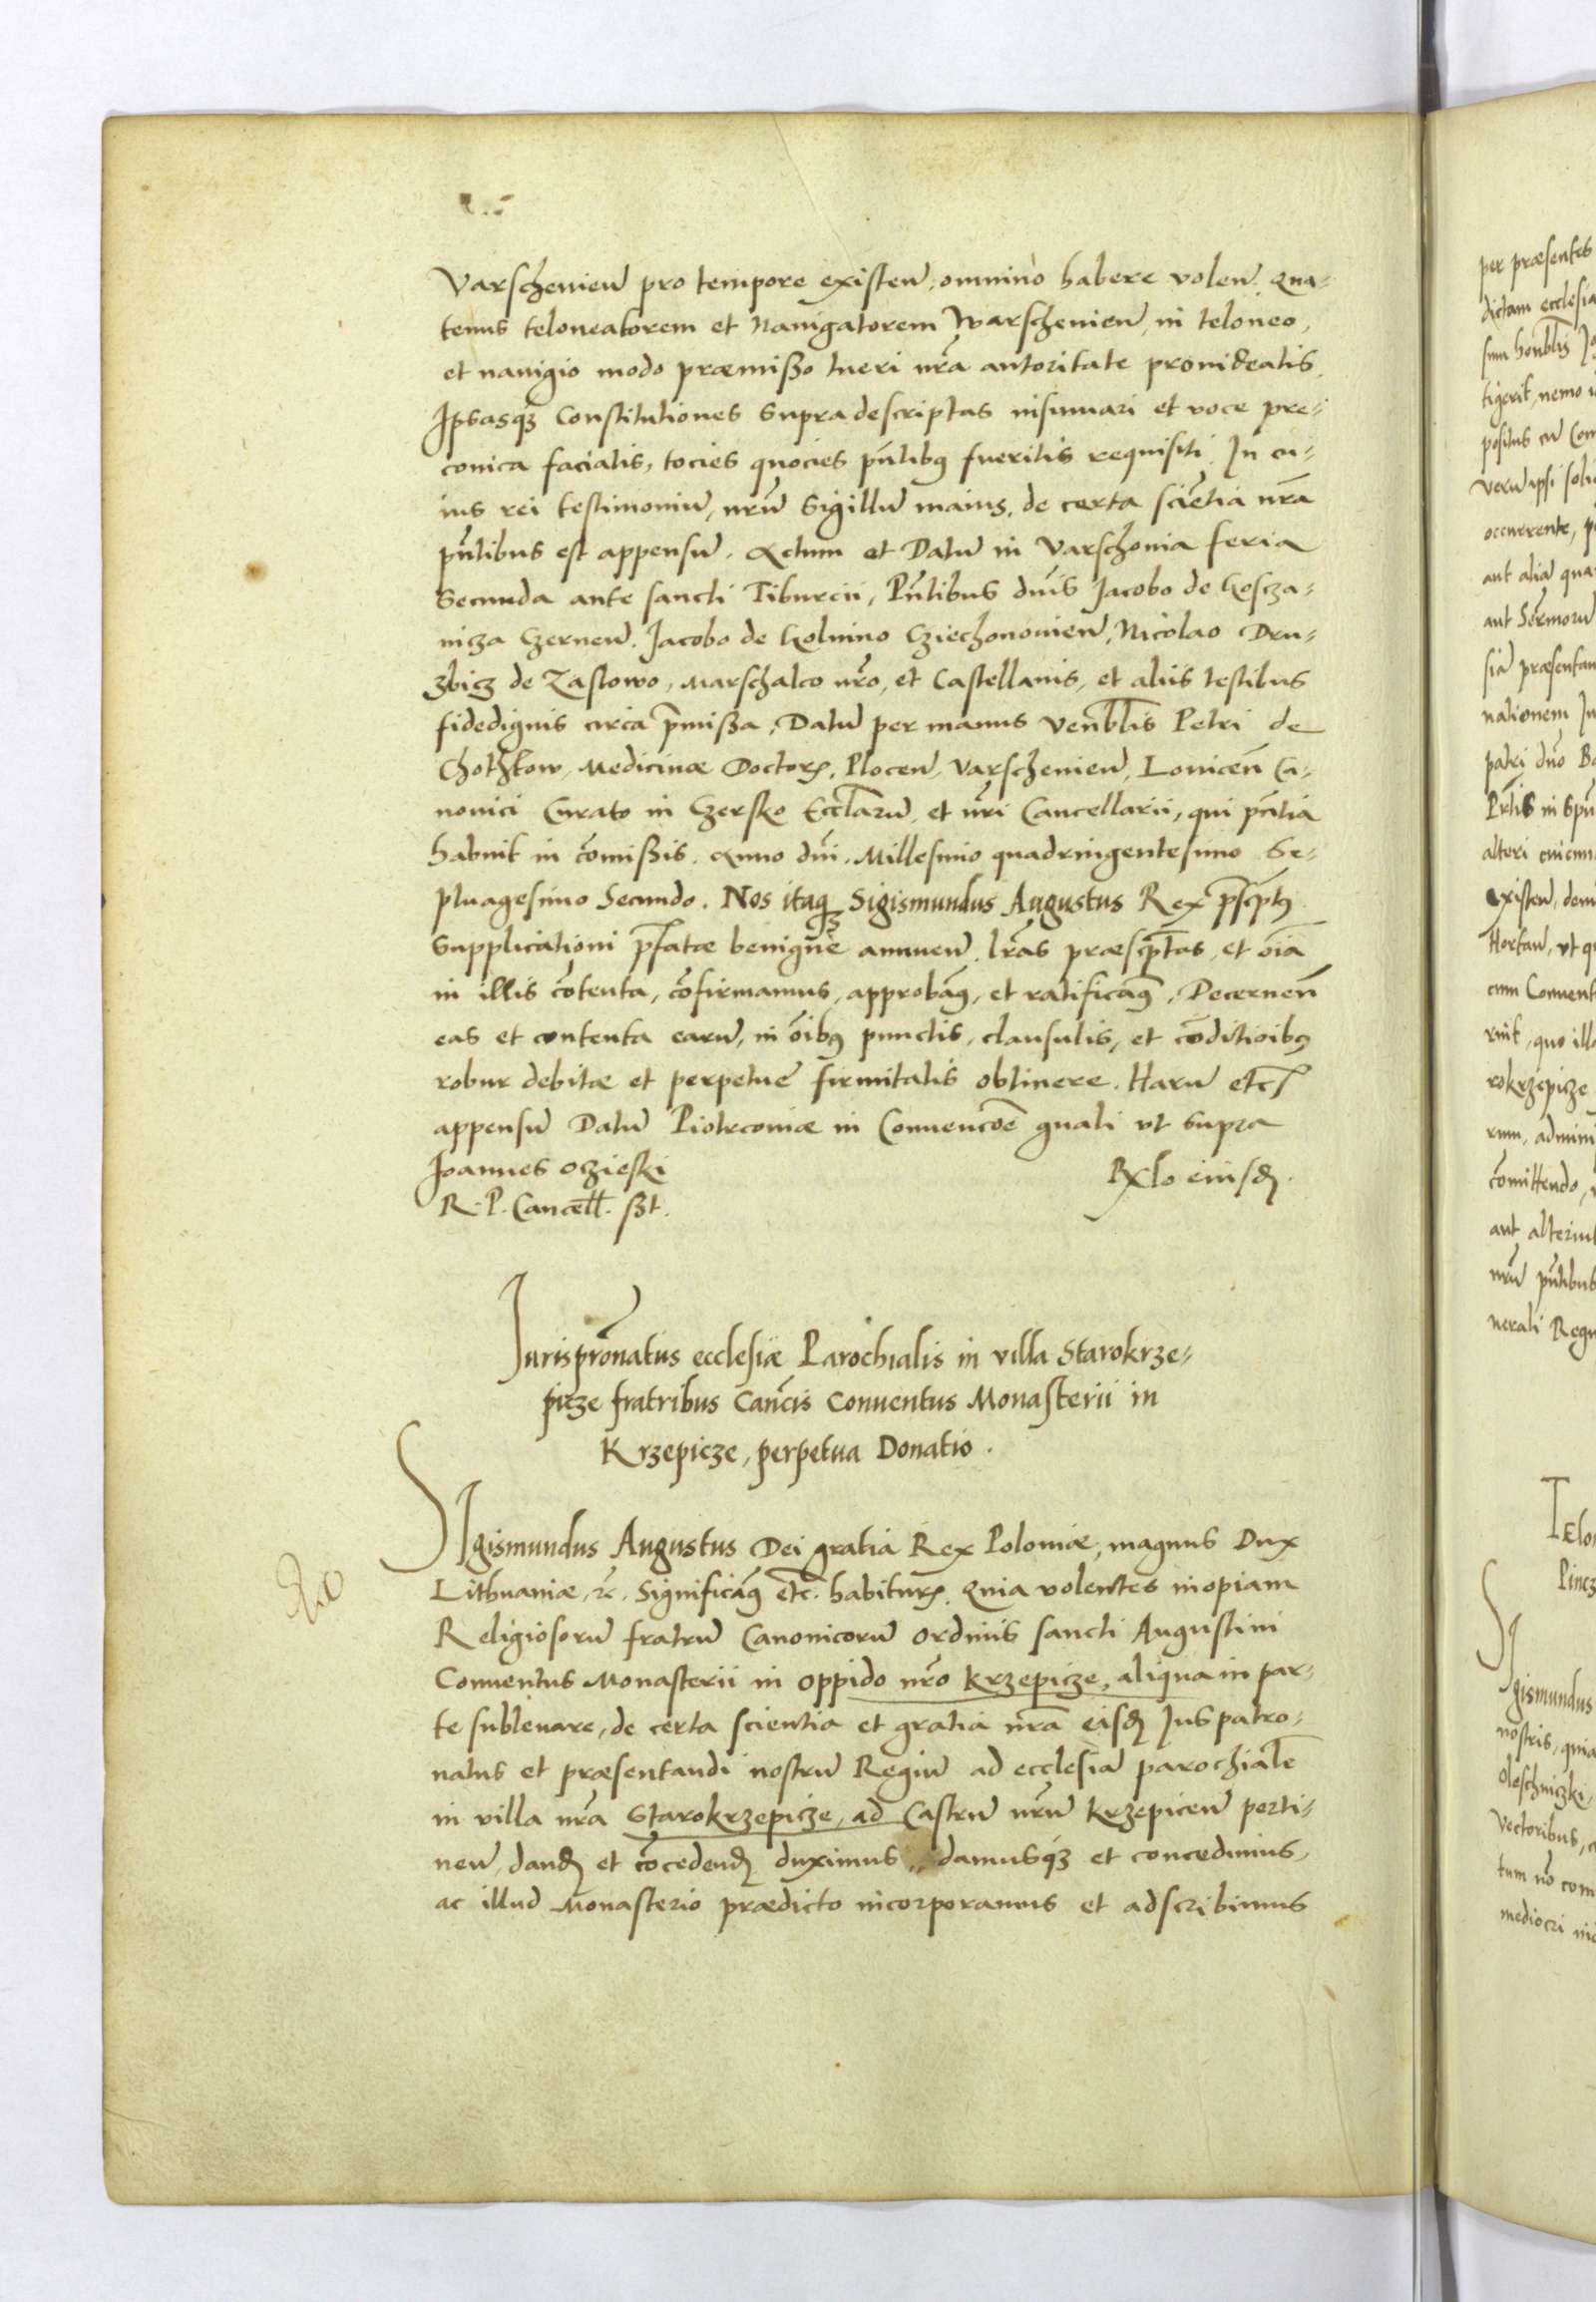 Varschenien̄ pro tempore existen̄, omnino habere volen̄. Qua-
tenus teloneatorem et Navigatorem Warschenien̄, in teloneo,
et navigio modo præmisso tueri nrā autoritate provideatis.
Ipsasq3 Constitutiones supradescriptas insinuari et voce pre-
conica faciatis, tocies quocies pn̄tibus fueritis requisiti. In cu-
ius rei testimoniū, nrūm Sigillū maius, de certa sciētia nrā
pn̄tibus est appensū. Actum et Datū in Varschovia feria
Secunda ante sancti Tiburcii, Pn̄tibus dnīs Jacobo de Koscza-
nicza Czernen̄. Jacobo de Kolnino Cziechonovien̄, Nicolao Dru-
zbicz de Zastowo, Marschalco nrō, et Castellanis, et aliis testibus
fidedignis circa p̄missa, Datū per manus Venb̄lis Petri de
Chothkow, Medicinæ Doctorꝭ, Plocen̄, Varschenien̄, Lovicen̄ Ca-
nonici Curato in Czersko Eccl̄arū, et nrī Cancellarii, qui pn̄tia
habuit in cōmissis. Anno dnī. Millesimo quadringentesimo Se-
ptuagesimo Secundo. Nos itaq3 Sigismundus Augustus Rex p̄sc̄pt9
Supplicationi p̄fatæ benignè annuen̄. lrās præsc̄ptas, et oīa
in illis cōtenta, cōfirmamus, approbām9, et ratificām9, Decernen̄
eas et contenta earū, in oībus punctis, clausulis, et cōditioib9
robur debitæ et perpetuę firmitatis obtinere. Harū etc̄
appensū Datū Piotrcoviæ in Convencōe gnali ut supra
Joannes Oczieski
R. P. Cancell̄. sst.
Rlo eiusdꝫ
Jurispr̄onatus ecclesiæ Parochialis in villa Starokrze-
picze fratribus Can̄cis Conventus Monasterii in
Krzepicze, perpetua Donatio.
Sigismundus Augustus Dei gratia Rex Poloniæ, magnus Dux
Lithuaniæ, ꝛc. Significām9 etc̄. habiturꝭ. Quia volentes inopiam
Religiosorū fratrū Canonicorū ordinis sancti Augustini
Conventus Monasterii in oppido nrō Krzepicze, aliqua in par-
te sublevare, de certa scientia et gratia nrā eisdꝫ Jus patro-
natus et præsentandi nostrū Regiū ad ecclesiā parochialē
in villa nrā Starokrzepicze, ad Castrū nrūm Krzepicen̄ perti-
nen̄, dandꝫ et cōcedendꝫ duximus, damusq3 et concedimus,
ac illud Monasterio prædicto incorporamus et adscribimus
per præsentes
dictam ecclesia
tigerit, nemo
occurrente,
aut alia
aut
nationem
patri dnō
alteri
Hortan̄, ut
cum Convent
rokrzepicze
cōmittendo,
nerali Regn
gismundus
nostris, quia
Vectoribus,
mediocri